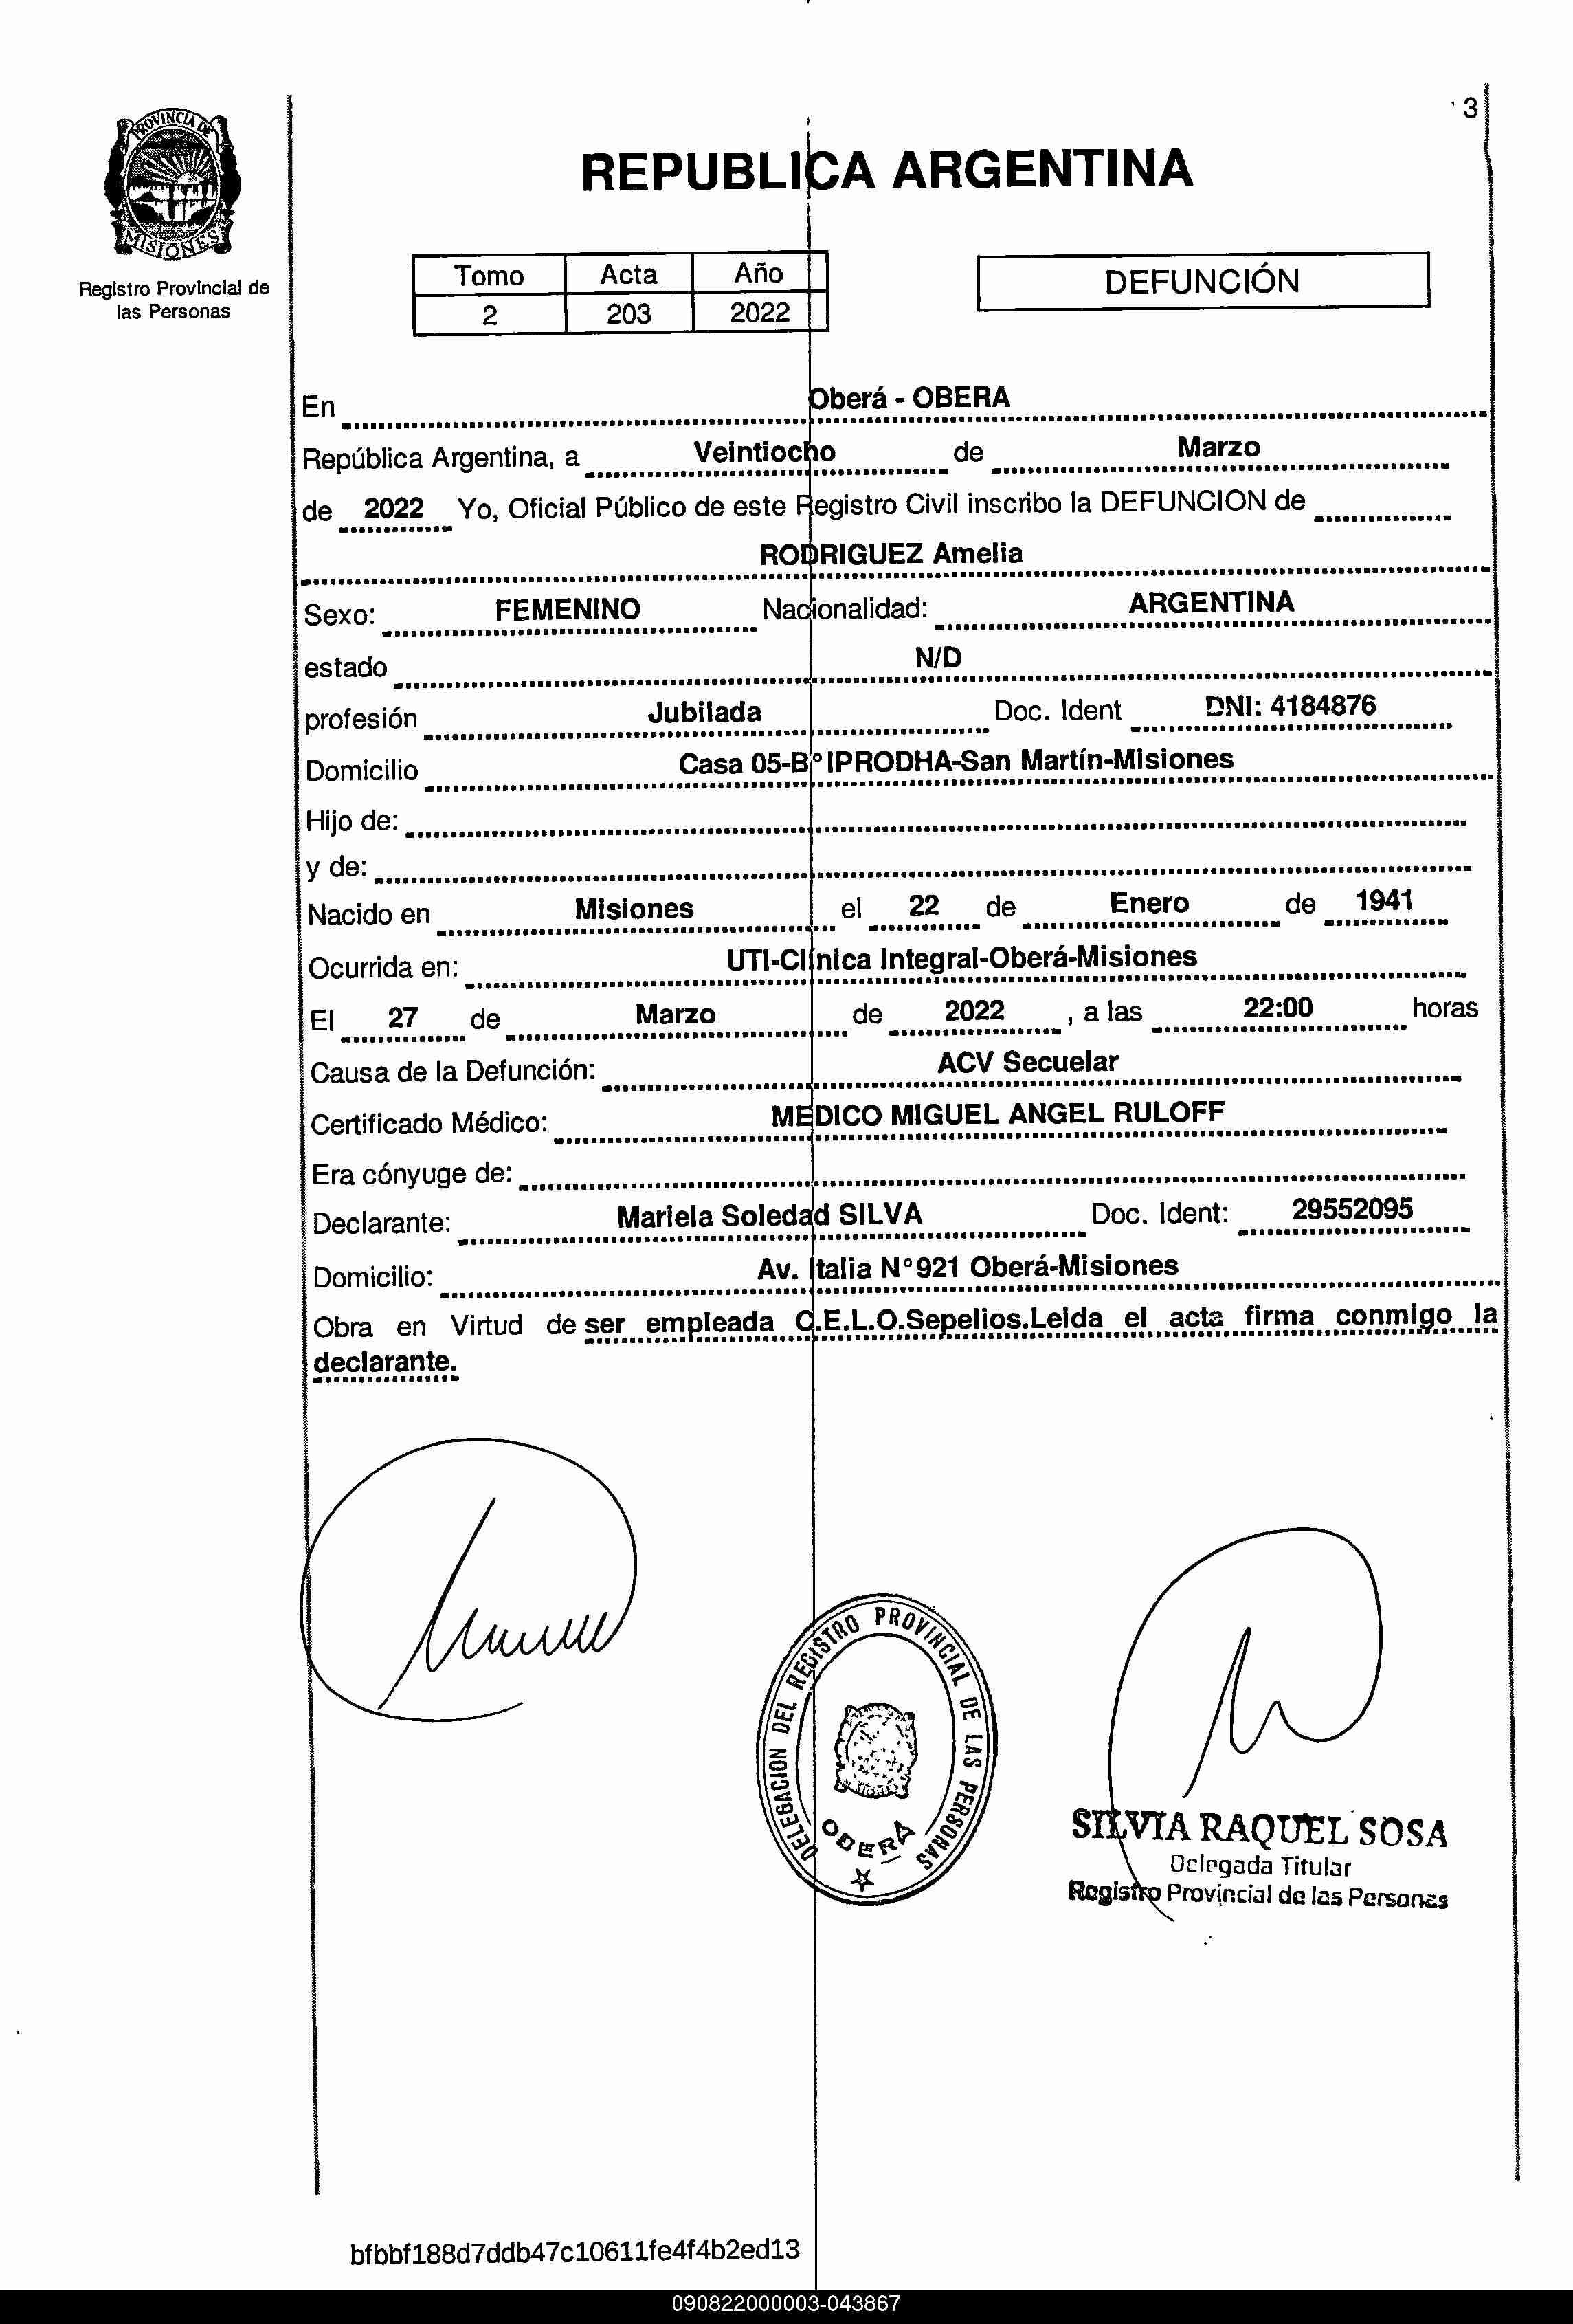 3
PROVINCIA DE
MISIONES
Registro Provincial de
las Personas
REPUBLICA ARGENTINA
Tomo Acta Año
2 203 2022
DEFUNCIÓN
En Oberá - OBERA
República Argentina, a Veintiocho de Marzo
de 2022 Yo, Oficial Público de este Registro Civil inscribo la DEFUNCION de
RODRIGUEZ Amelia
Sexo: FEMENINO Nacionalidad: ARGENTINA
estado N/D
profesión Jubilada Doc. Ident DNI: 4184876
Domicilio Casa 05-B° IPRODHA-San Martín-Misiones
Hijo de:
y de:
Nacido en Misiones el 22 de Enero de 1941
Ocurrida en: UTI-Clínica Integral-Oberá-Misiones
El 27 de Marzo de 2022 , a las 22:00 horas
Causa de la Defunción: ACV Secuelar
Certificado Médico: MEDICO MIGUEL ANGEL RULOFF
Era cónyuge de:
Declarante: Mariela Soledad SILVA Doc. Ident: 29552095
Domicilio: Av. Italia N°921 Oberá-Misiones
Obra en Virtud de ser empleada C.E.L.O.Sepelios.Leida el acta firma conmigo la
declarante.
DELEGACION DEL REGISTRO PROVINCIAL DE LAS PERSONAS
OBERÁ
SILVIA RAQUEL SOSA
Delegada Titular
Registro Provincial de las Personas
bfbbf188d7ddb47c10611fe4f4b2ed13
090822000003-043867